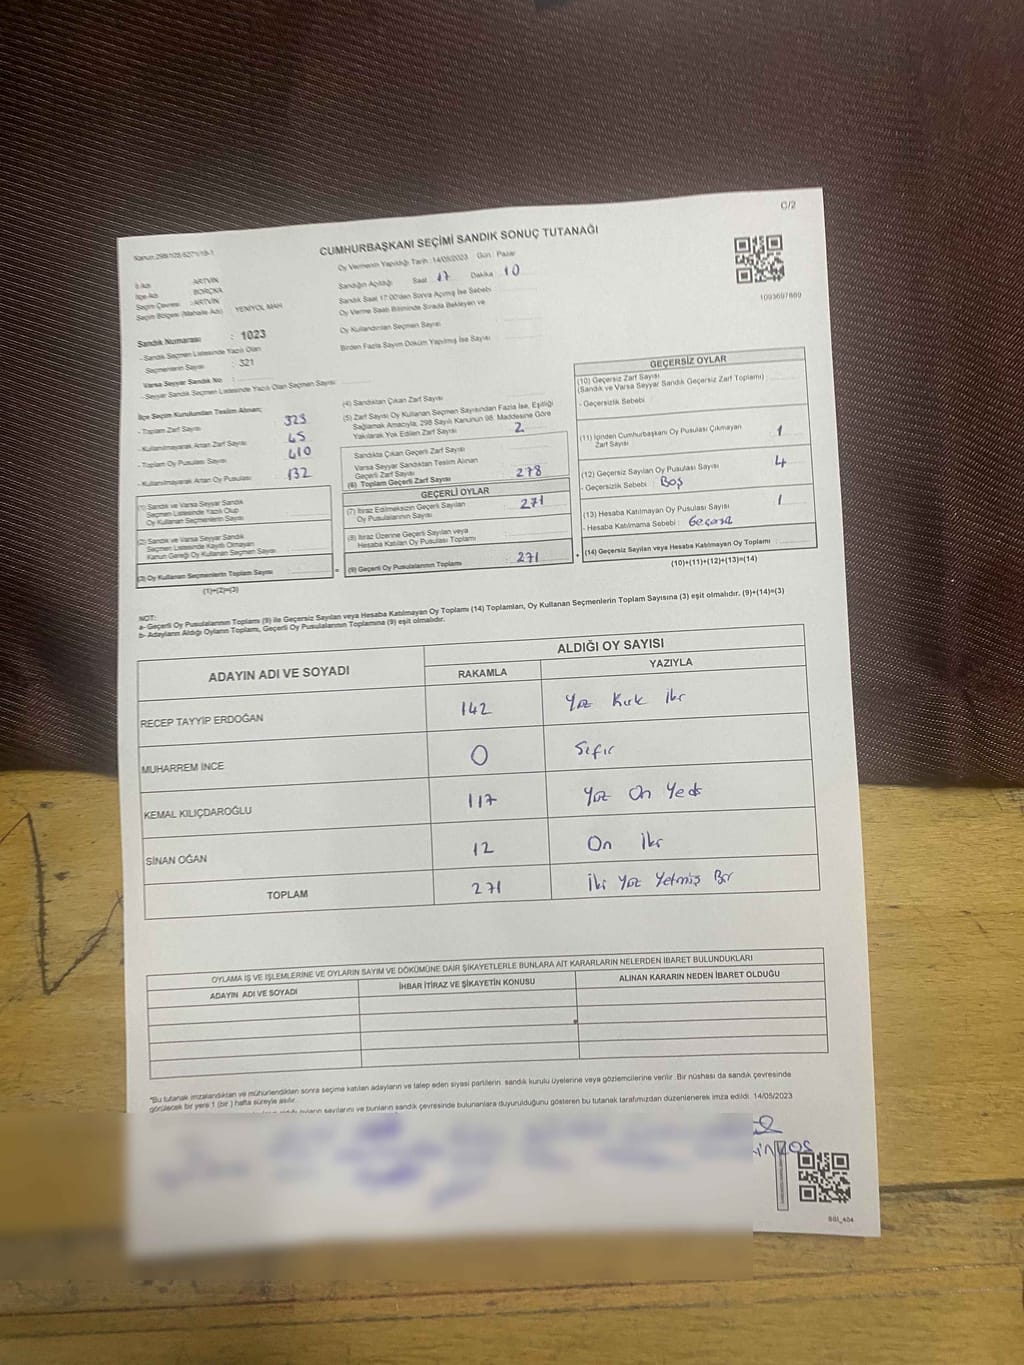 C/2
CUMHURBAŞKANI SEÇİMİ SANDIK SONUÇ TUTANAĞI
Oy Vermenin Yapıldığı Tarih : 14/05/2023 Gün : Pazar
Sandığın Açıldığı Saat 17 Dakika 10
Sandık Saat 17:00'den Sonra Açılmış İse Sebebi
Oy Verme Saati Bitiminde Sırada Bekleyen ve
Oy Kullandırılan Seçmen Sayısı
Birden Fazla Sayım Döküm Yapılmış İse Sayısı
1093697869
İl Adı : ARTVİN
İlçe Adı : BORÇKA
Seçim Çevresi : ARTVİN
Seçim Bölgesi (Mahalle Adı) : YENİYOL MAH
Sandık Numarası : 1023
- Sandık Seçmen Listesinde Yazılı Olan
Seçmenlerin Sayısı : 321
Varsa Seyyar Sandık No :
- Seyyar Sandık Seçmen Listesinde Yazılı Olan Seçmen Sayısı
İlçe Seçim Kurulundan Teslim Alınan;
- Toplam Zarf Sayısı 323
- Kullanılmayarak Artan Zarf Sayısı 45
- Toplam Oy Pusulası Sayısı 410
- Kullanılmayarak Artan Oy Pusulası 132
(1) Sandık ve Varsa Seyyar Sandık
Seçmen Listesinde Yazılı Olup
Oy Kullanan Seçmenlerin Sayısı
(2) Sandık ve Varsa Seyyar Sandık
Seçmen Listesinde Kayıtlı Olmayan
Kanun Gereği Oy Kullanan Seçmen Sayısı
(3) Oy Kullanan Seçmenlerin Toplam Sayısı
(1)+(2)=(3)
(4) Sandıktan Çıkan Zarf Sayısı
(5) Zarf Sayısı Oy Kullanan Seçmen Sayısından Fazla İse, Eşitliği
Sağlamak Amacıyla, 298 Sayılı Kanunun 98. Maddesine Göre
Yakılarak Yok Edilen Zarf Sayısı 2
Sandıkta Çıkan Geçerli Zarf Sayısı
Varsa Seyyar Sandıktan Teslim Alınan
Geçerli Zarf Sayısı
(6) Toplam Geçerli Zarf Sayısı 278
GEÇERLİ OYLAR
(7) İtiraz Edilmeksizin Geçerli Sayılan
Oy Pusulalarının Sayısı 271
(8) İtiraz Üzerine Geçerli Sayılan veya
Hesaba Katılan Oy Pusulası Toplamı
= (9) Geçerli Oy Pusulalarının Toplamı 271
GEÇERSİZ OYLAR
(10) Geçersiz Zarf Sayısı
(Sandık ve Varsa Seyyar Sandık Geçersiz Zarf Toplamı)
- Geçersizlik Sebebi
(11) İçinden Cumhurbaşkanı Oy Pusulası Çıkmayan
Zarf Sayısı 1
(12) Geçersiz Sayılan Oy Pusulası Sayısı 4
- Geçersizlik Sebebi : Boş
(13) Hesaba Katılmayan Oy Pusulası Sayısı 1
- Hesaba Katılmama Sebebi :
+ (14) Geçersiz Sayılan veya Hesaba Katılmayan Oy Toplamı
(10)+(11)+(12)+(13)=(14)
NOT:
a- Geçerli Oy Pusulalarının Toplamı (9) ile Geçersiz Sayılan veya Hesaba Katılmayan Oy Toplamı (14) Toplamları, Oy Kullanan Seçmenlerin Toplam Sayısına (3) eşit olmalıdır. (9)+(14)=(3)
b- Adayların Aldığı Oyların Toplamı, Geçerli Oy Pusulalarının Toplamına (9) eşit olmalıdır.
ADAYIN ADI VE SOYADI
ALDIĞI OY SAYISI
RAKAMLA YAZIYLA
RECEP TAYYİP ERDOĞAN 142 Yüz Kırk İki
MUHARREM İNCE 0 Sıfır
KEMAL KILIÇDAROĞLU 117 Yüz On Yedi
SİNAN OĞAN 12 On İki
TOPLAM 271 İki Yüz Yetmiş Bir
OYLAMA İŞ VE İŞLEMLERİNE VE OYLARIN SAYIM VE DÖKÜMÜNE DAİR ŞİKAYETLERLE BUNLARA AİT KARARLARIN NELERDEN İBARET BULUNDUKLARI
ADAYIN ADI VE SOYADI İHBAR İTİRAZ VE ŞİKAYETİN KONUSU ALINAN KARARIN NEDEN İBARET OLDUĞU
*Bu tutanak imzalandıktan ve mühürlendikten sonra seçime katılan adayların ve talep eden siyasi partilerin sandık kurulu üyelerine veya gözlemcilerine verilir. Bir nüshası da sandık çevresinde
görülecek bir yere 1 (bir) hafta süreyle asılır.
oyların sayılarını ve bunların sandık çevresinde bulunanlara duyurulduğunu gösteren bu tutanak tarafımızdan düzenlenerek imza edildi. 14/05/2023